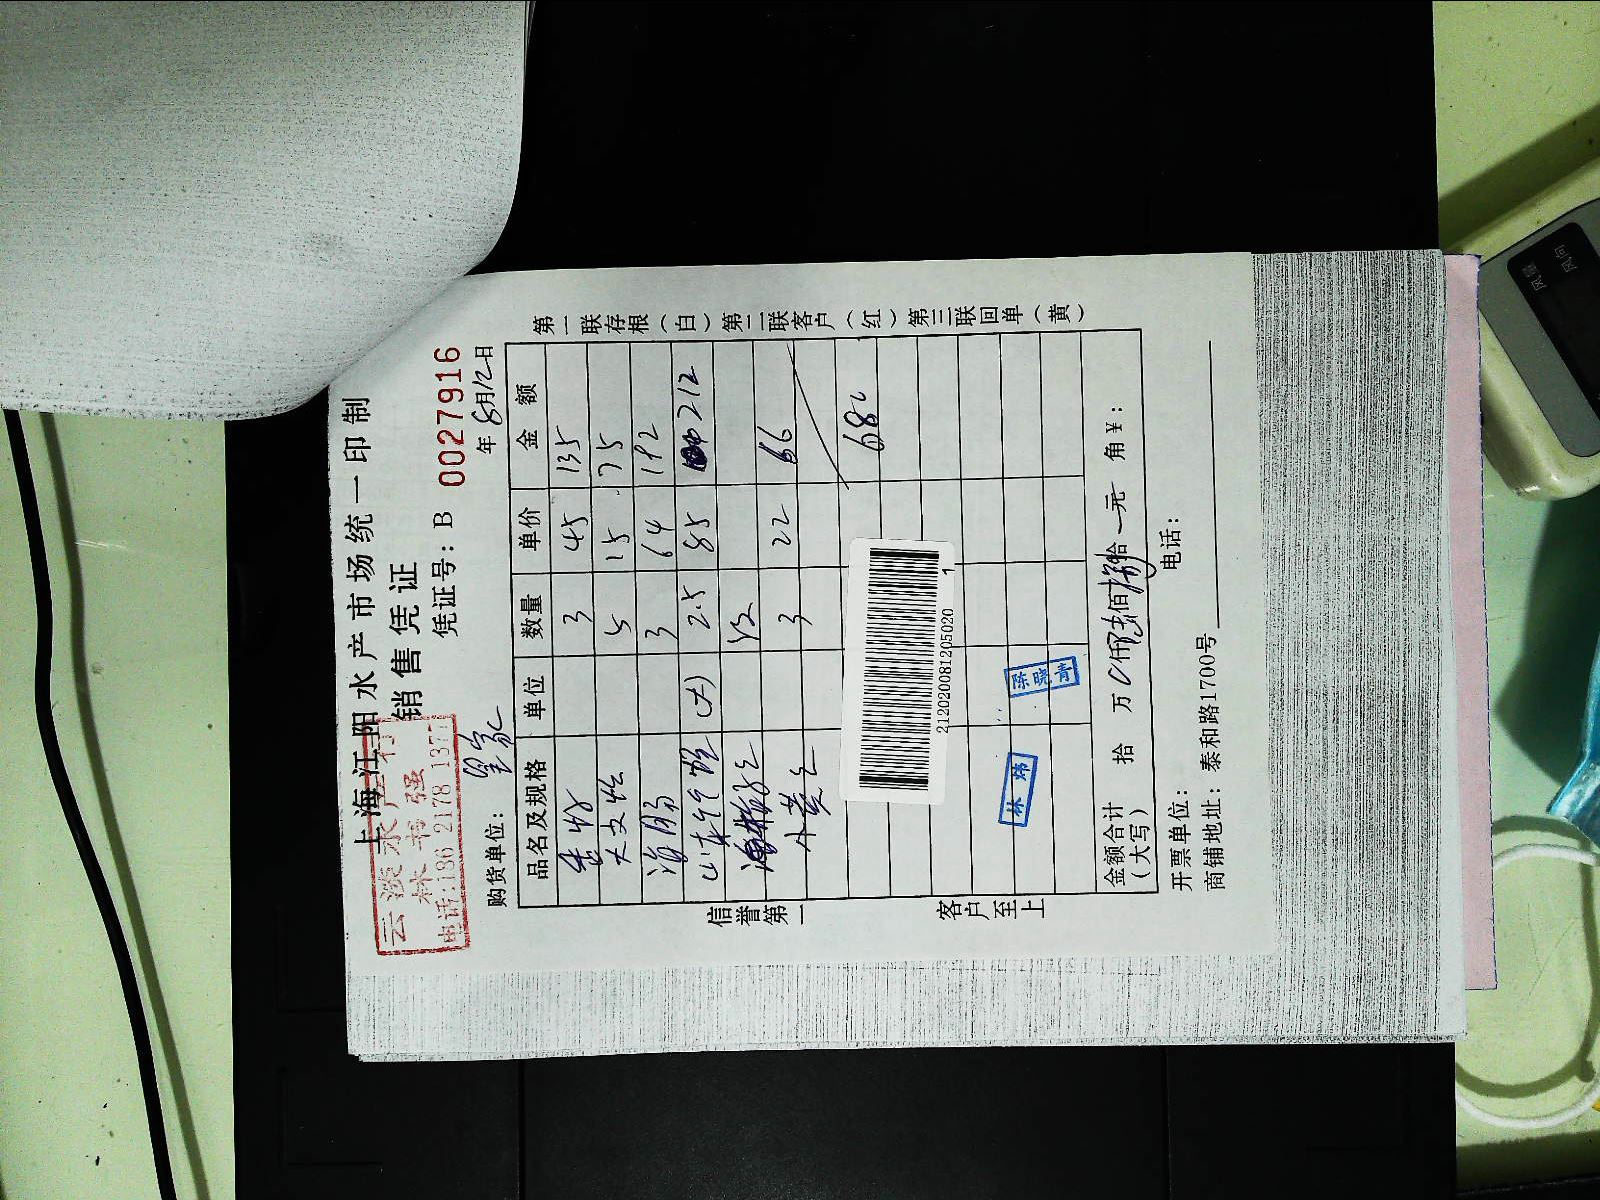 上海江阳水产市场统一印制
销售凭证
云淡水产行
林书强
电话:136 2178 1377
凭证号：B 0027916
购货单位：
年 8月12日
品名及规格 单位 数量 单价 金额
3 45 135
5 15 75
3 64 192
(大) 2.5 85 212
小黄 3 22 66
682
2120200812050201
陈晓青
林炜
金额合计
（大写）
拾 万 仟 佰 拾 元 角￥：
开票单位： 电话：
商铺地址：泰和路1700号
信誉第一
客户至上
第一联存根（白）第二联客户（红）第三联回单（黄）
风量
风向